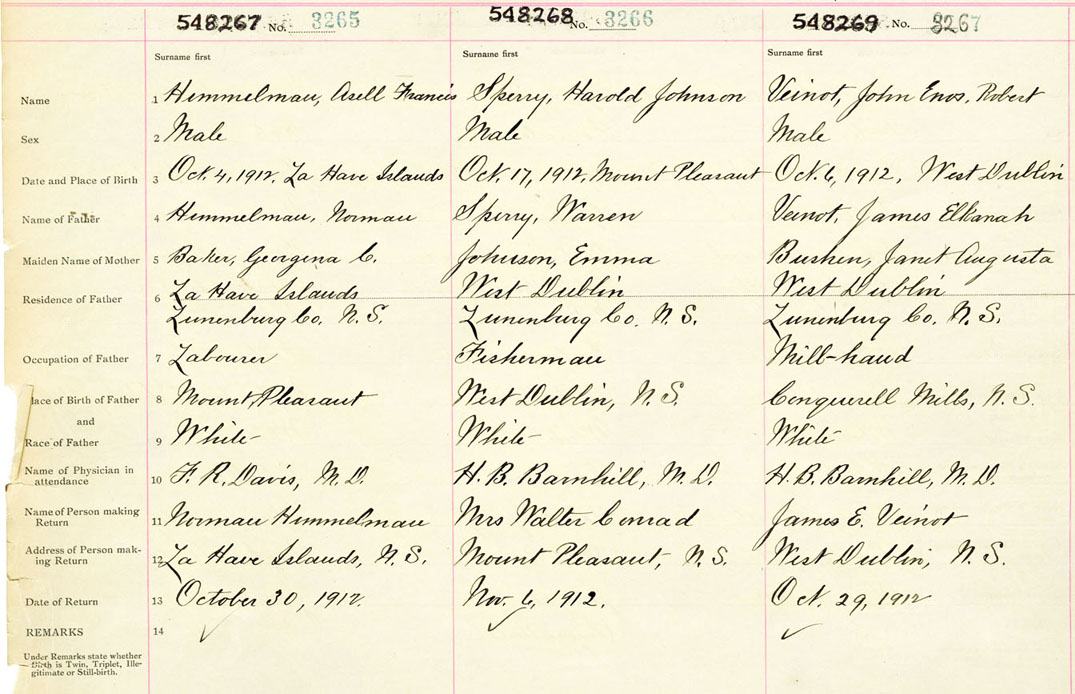 548267 No. 3265 548268 No. 3266 548269 No. 3267
Surname first Surname first Surname first
Name 1 Himmelman, Asell Francis Sperry, Harold Johnson Veinot, John Enos, Robert
Sex 2 Male Male Male
Date and Place of Birth 3 Oct. 4, 1912, La Have Islands Oct. 17, 1912, Mount Pleasant Oct. 6, 1912, West Dublin
Name of Father 4 Himmelman, Norman Sperry, Warren Veinot, James Elkanah
Maiden Name of Mother 5 Baker, Georgina C. Johnson, Emma Bushen, Janet Augusta
Residence of Father 6 La Have Islands West Dublin West Dublin
Lunenburg Co. N.S. Lunenburg Co. N.S. Lunenburg Co. N.S.
Occupation of Father 7 Labourer Fisherman Mill-hand
lace of Birth of Father 8 Mount Pleasant West Dublin, N.S. Conquerell Mills, N.S.
and
Race of Father 9 White White White
Name of Physician in
attendance 10 F. R. Davis, M.D. H. B. Barnhill, M.D. H. B. Barnhill, M.D.
Name of Person making
Return 11 Norman Himmelman Mrs Walter Conrad James E. Veinot
Address of Person mak-
ing Return 12 La Have Islands, N.S. Mount Pleasant, N.S. West Dublin, N.S.
Date of Return 13 October 30, 1912. Nov. 6, 1912. Oct. 29, 1912
REMARKS 14
Under Remarks state whether
Birth is Twin, Triplet, Ille-
gitimate or Still-birth.